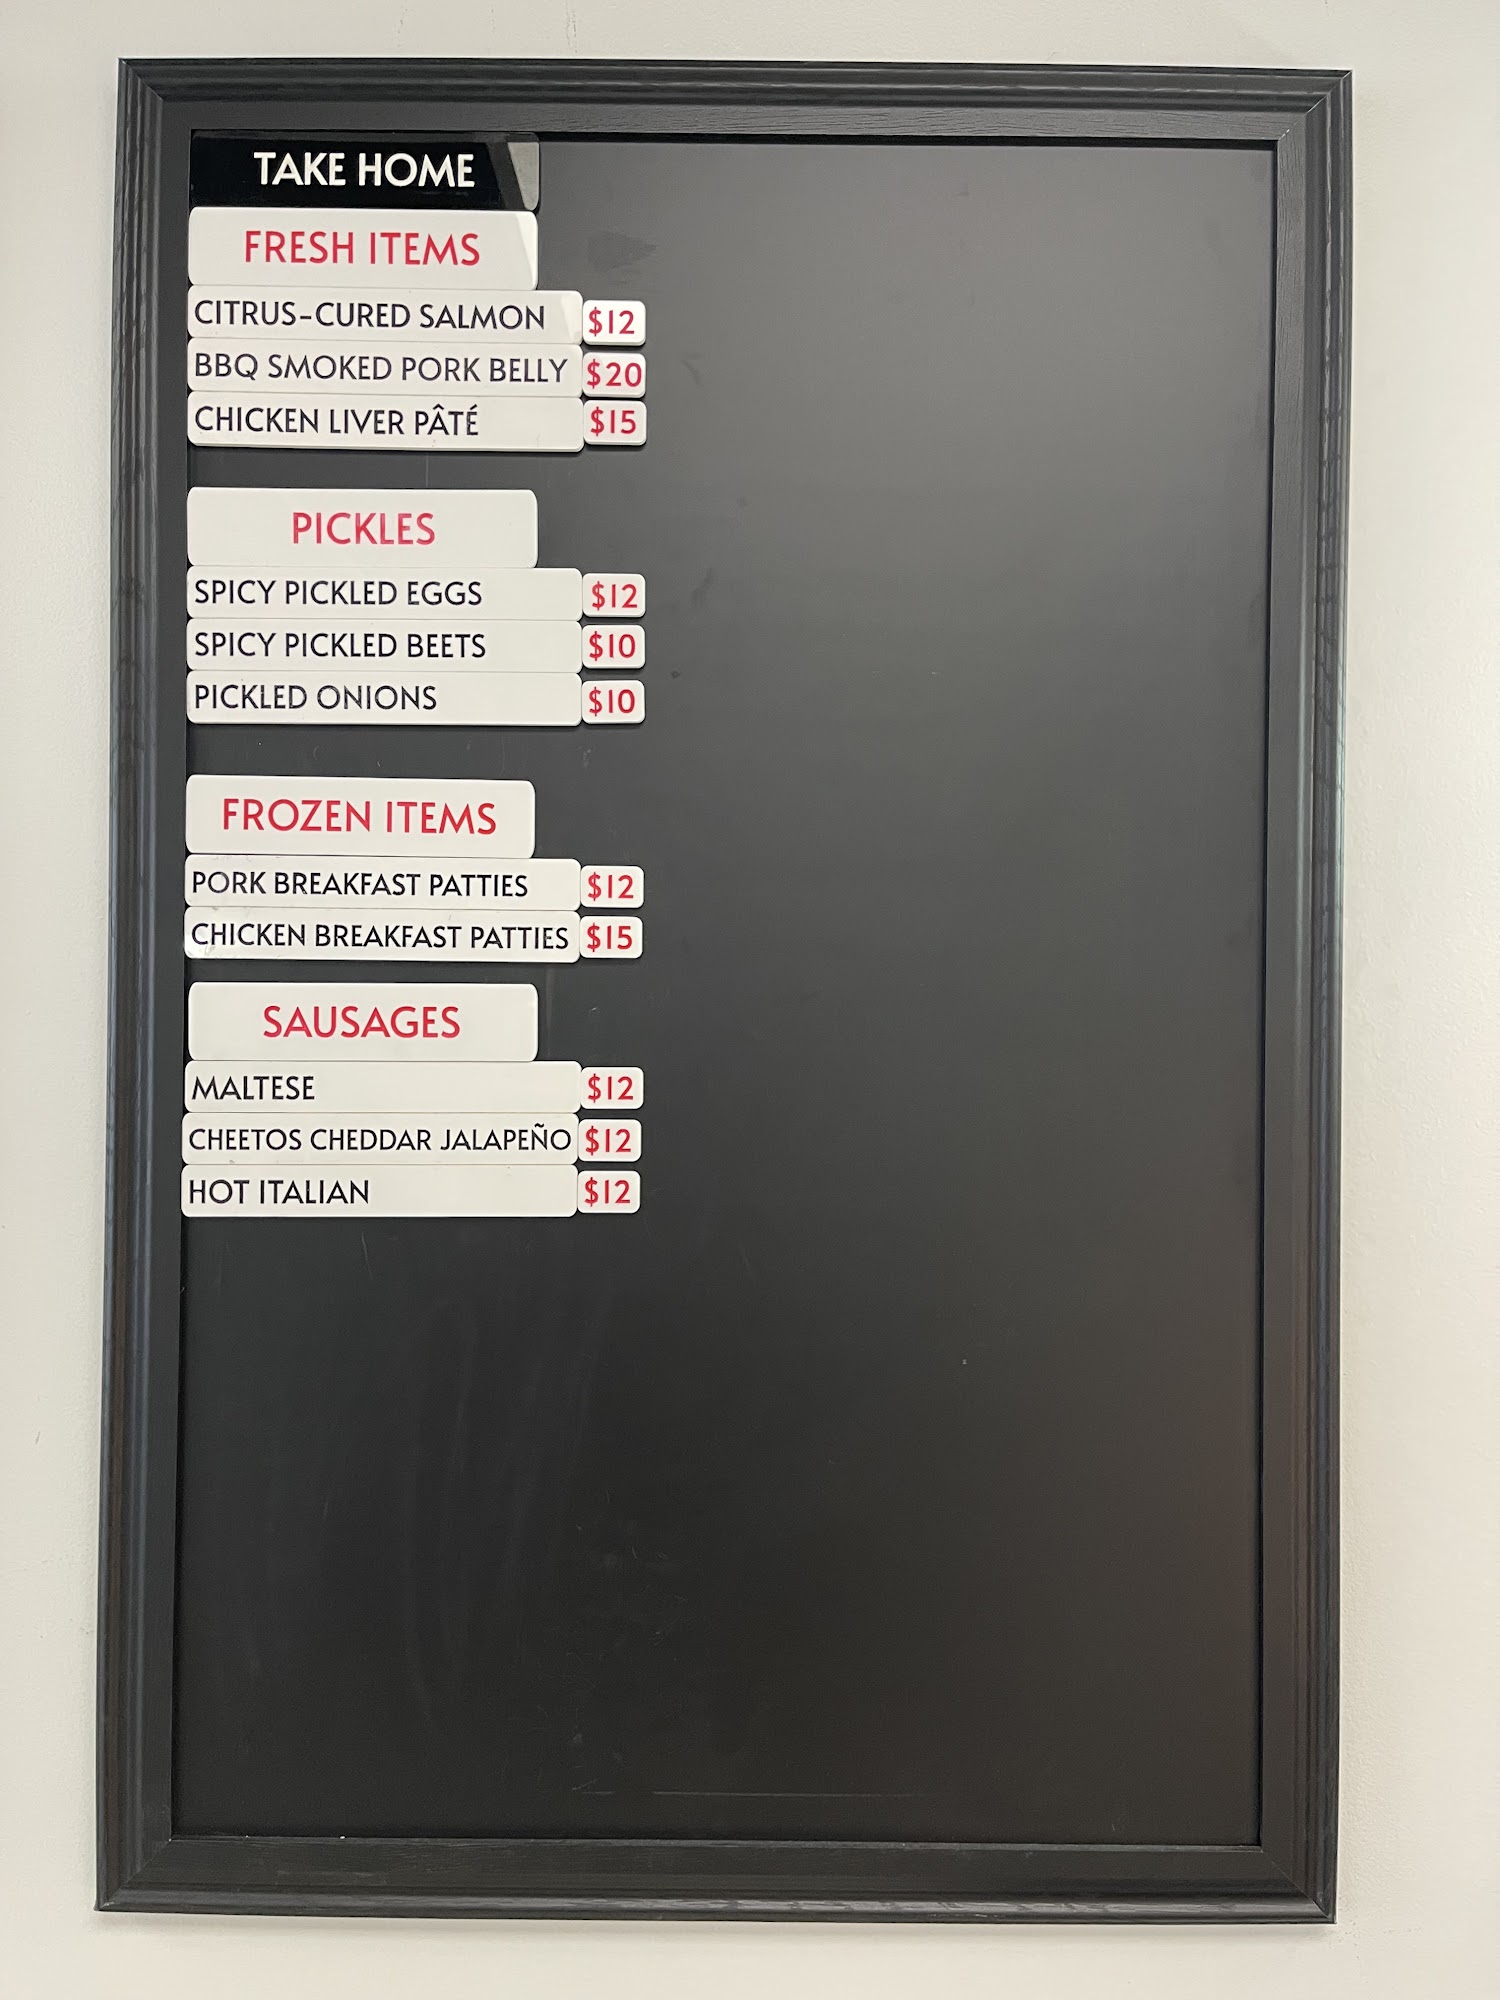 TAKE HOME
FRESH ITEMS
CITRUS-CURED SALMON $12
BBQ SMOKED PORK BELLY $20
CHICKEN LIVER PÂTÉ $15
PICKLES
SPICY PICKLED EGGS $12
SPICY PICKLED BEETS $10
PICKLED ONIONS $10
FROZEN ITEMS
PORK BREAKFAST PATTIES $12
CHICKEN BREAKFAST PATTIES $15
SAUSAGES
MALTESE $12
CHEETOS CHEDDAR JALAPEÑO $12
HOT ITALIAN $12